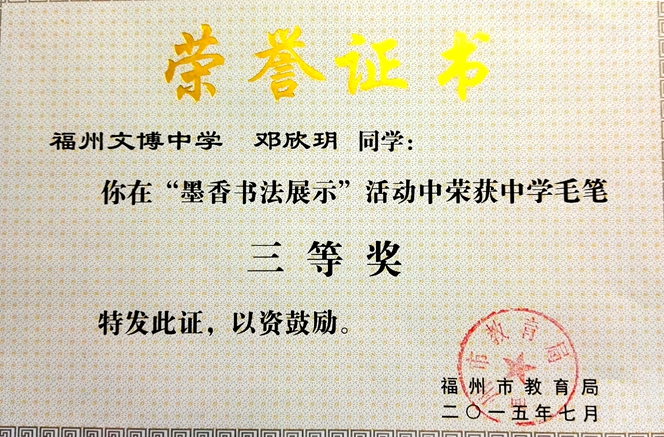 荣誉证书
福州文博中学 邓欣玥 同学：
你在“墨香书法展示”活动中荣获中学毛笔
三等奖
特发此证，以资鼓励。
福州市教育局
二〇一五年七月